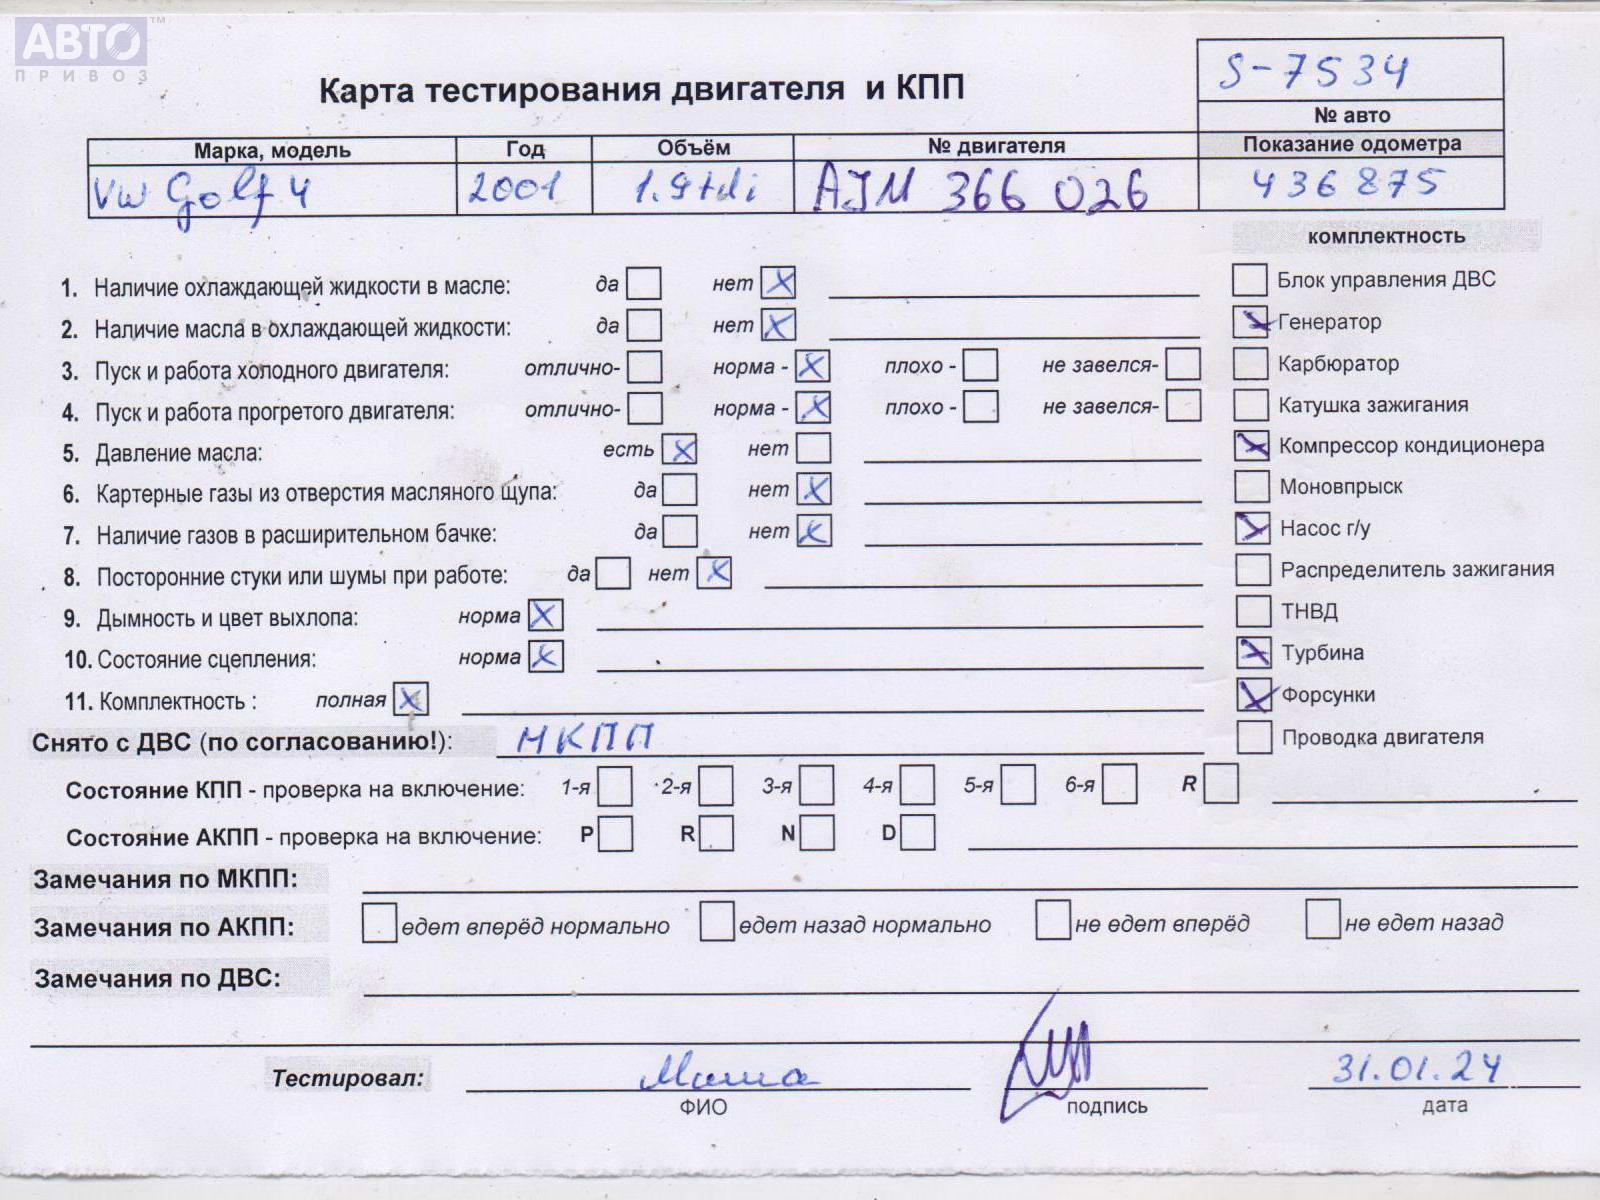 АВТО™
ПРИВОЗ
S-7534
Карта тестирования двигателя и КПП
№ авто
Марка, модель Год Объём № двигателя Показание одометра
VW Golf 4 2001 1.9tdi AJM 366 026 436875
комплектность
1. Наличие охлаждающей жидкости в масле: да нет X Блок управления ДВС
2. Наличие масла в охлаждающей жидкости: да нет X Генератор
3. Пуск и работа холодного двигателя: отлично- норма - X плохо - не завелся- Карбюратор
4. Пуск и работа прогретого двигателя: отлично- норма - X плохо - не завелся- Катушка зажигания
5. Давление масла: есть X нет Компрессор кондиционера
6. Картерные газы из отверстия масляного щупа: да нет X Моновпрыск
7. Наличие газов в расширительном бачке: да нет X Насос г/у
8. Посторонние стуки или шумы при работе: да нет X Распределитель зажигания
9. Дымность и цвет выхлопа: норма X ТНВД
10. Состояние сцепления: норма X Турбина
11. Комплектность : полная X Форсунки
Снято с ДВС (по согласованию!): МКПП Проводка двигателя
Состояние КПП - проверка на включение: 1-я 2-я 3-я 4-я 5-я 6-я R
Состояние АКПП - проверка на включение: P R N D
Замечания по МКПП:
Замечания по АКПП: едет вперёд нормально едет назад нормально не едет вперёд не едет назад
Замечания по ДВС:
Тестировал: Миша 31.01.24
ФИО подпись дата